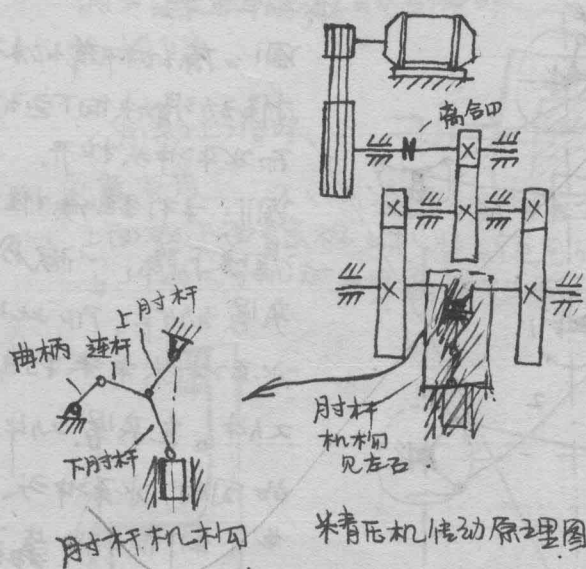 离合口
上肘杆
曲柄 连杆
下肘杆
肘杆
机构
见左右
肘杆机构
精压机传动原理图